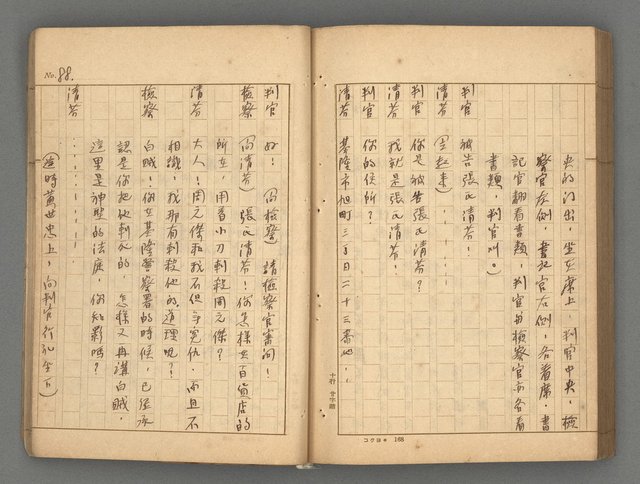 央的门出，坐在席上，判官中央，檢
察官左側，書記官右側，各着席，書
記官翻看書類，判官与檢察官亦各看
書類，判官叫。）
判官　被告張氏清芬！
清芬　（立起來）
判官　你是被告張氏清芬？
清芬　我就是張氏清芬！
判官　你的住所？
清芬　基隆市旭町三丁目二十三番地，
十行　廿字詰
コクヨ　168
No. 88.
判官　好！（向檢察）請檢察官審问！
檢察　（向清芬）張氏清芬！你怎樣在百貨店的
所在，用着小刀刺殺周元傑？
清芬　大人！周元傑和我不但無冤仇，而且不
相識，我那有刺殺他的道理呢？
檢察　白賊！你在基隆警察署的時候，已經承
認是你把他刺死的，怎樣又再講白賊，
這里是神聖的法庭，你知影嗎？
清芬　…………
（這時黃世忠上，向判官行礼坐下）